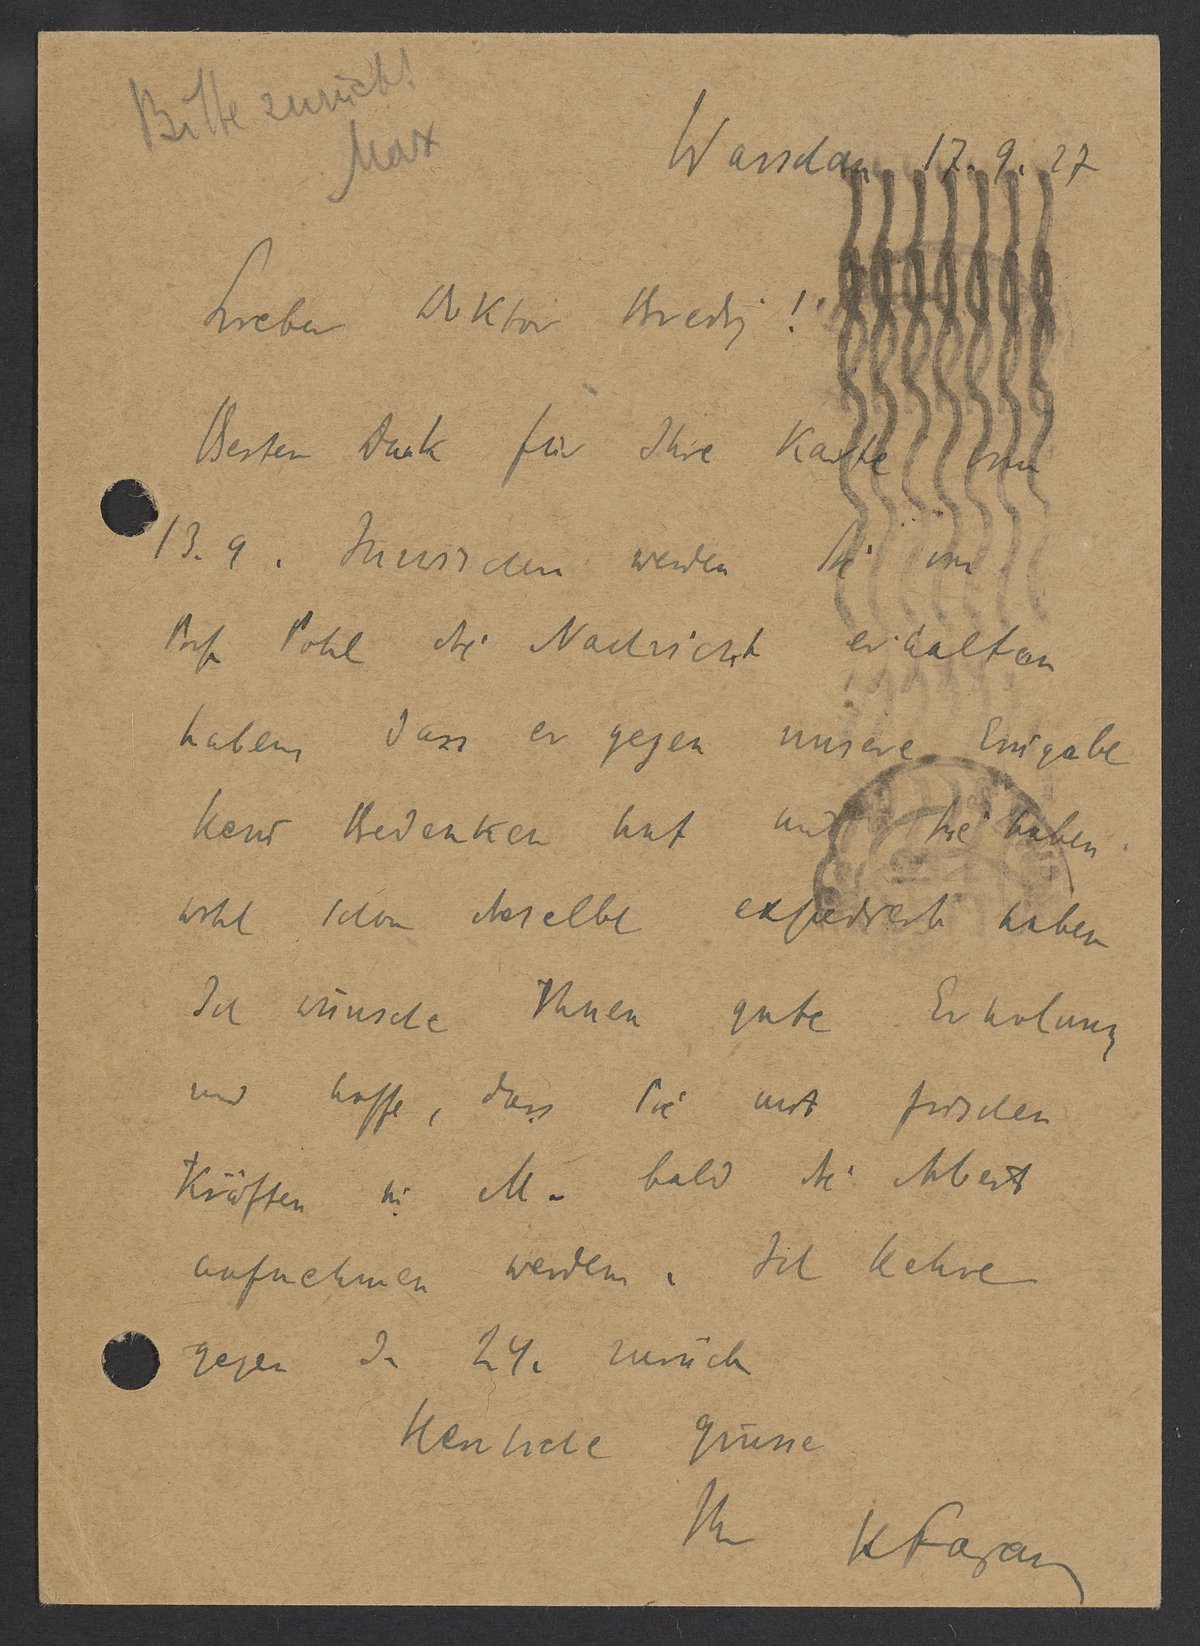 Bitte zurück!
Max
Warschau 17.9.27
Lieber Doktor Bredig!
Besten Dank für Ihre Karte vom
13.9. Inzwischen werden Sie von
Prof Pohl die Nachricht erhalten
haben, dass er gegen unsere Eingabe
kein Bedenken hat und Sie haben
wohl schon dieselbe expediert haben
Ich wünsche Ihnen gute Erholung
und hoffe, dass Sie mit frischen
Kräften in M. bald die Arbeit
aufnehmen werden. Ich kehre
gegen d. 24. zurück
Herzliche Grüsse
Ihr K Fajans